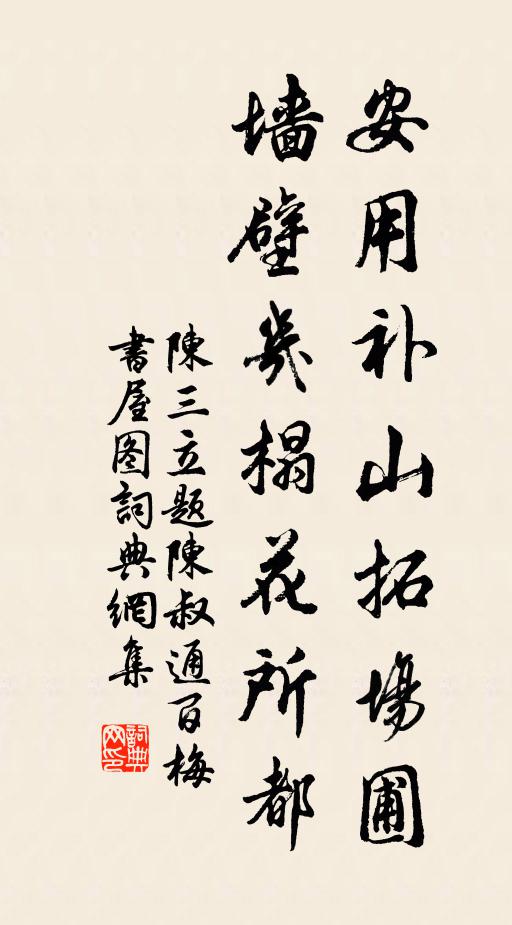 安用补山拓場圃
墙壁幾榻花所都
陳三立题陳叔通百梅
書屋图詞典網集
詞典网印